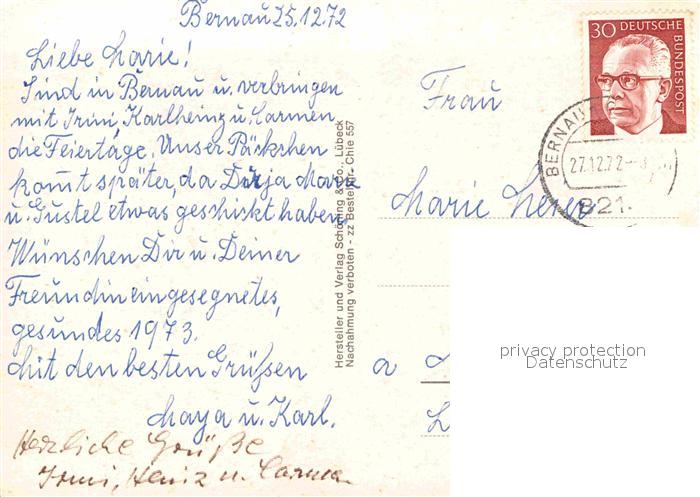 Bernau 25.12.72
Liebe Marie!
Sind in Bernau u. verbringen
mit Irmi Karlheinz u. Carmen
die Feiertage. Unser Päckchen
kommt später, da Dir ja Maria
u. Gustel etwas geschickt haben.
Wünschen Dir u. Deiner
Freundin ein gesegnetes,
gesundes 1973.
Mit den besten Grüßen
Maya u. Karl.
Herzliche Grüße
Irmi, Heinz u. Carmen
Hersteller und Verlag Schöning & Co., Lübeck
Nachahmung verboten - zz Bestell-Nr. Chie 557
30 DEUTSCHE BUNDESPOST
BERNAU
27.12.72
821
Frau
Marie
a
privacy protection
Datenschutz